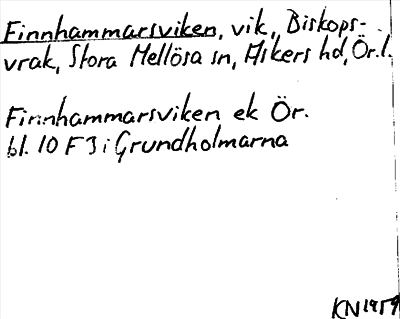 Finnhammarsviken, vik, Biskops-
vrak, Stora Mellösa sn, Askers hd, Ör. l.
Finnhammarsviken ek Ör.
bl. 10 F 3 i Grundholmarna
KN 1959